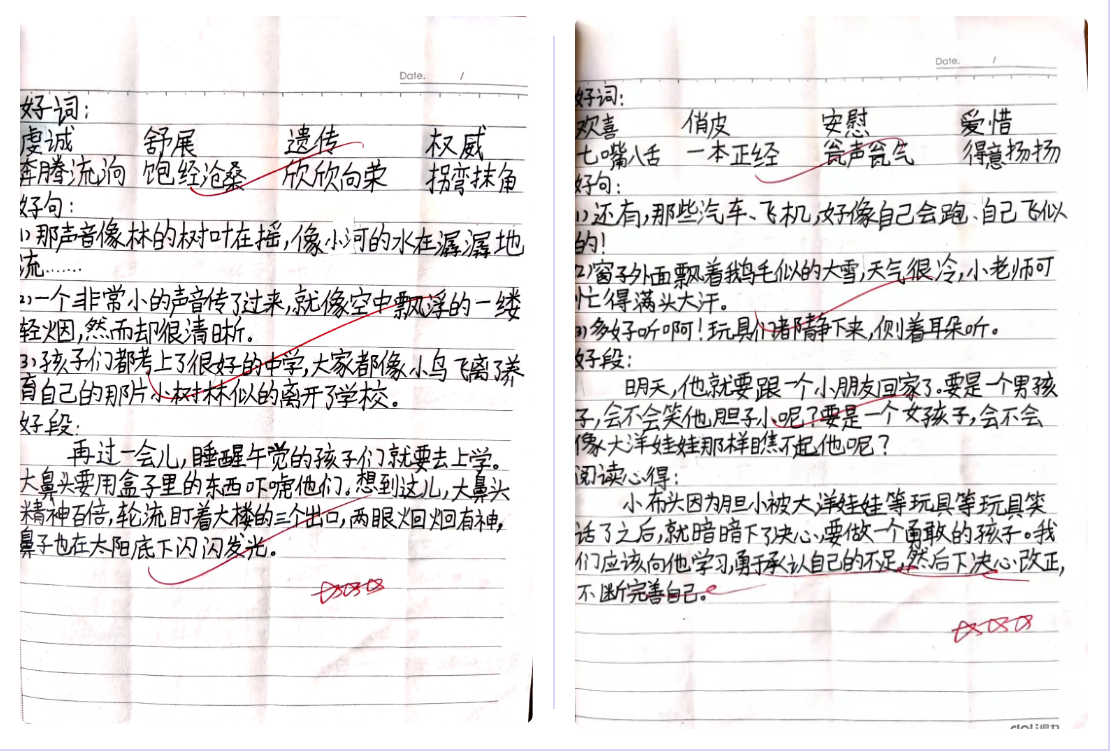 Date. /
好词：
虔诚 舒展 遗传 权威
奔腾流淌 饱经沧桑 欣欣向荣 拐弯抹角
好句：
1)那声音像林的树叶在摇，像小河的水在潺潺地
流……
2)一个非常小的声音传了过来，就像空中飘浮的一缕
轻烟，然而却很清晰。
3)孩子们都考上了很好的中学，大家都像小鸟飞离了养
育自己的那片小树林似的离开了学校。
好段：
再过一会儿，睡醒午觉的孩子们就要去上学。
大鼻头要用盒子里的东西吓唬他们。想到这儿，大鼻头
精神百倍，轮流盯着大楼的三个出口，两眼炯炯有神，
鼻子也在太阳底下闪闪发光。
Date. /
好词：
欢喜 俏皮 安慰 爱惜
七嘴八舌 一本正经 瓮声瓮气 得意扬扬
好句：
1)还有，那些汽车、飞机，好像自己会跑、自己飞似
的！
2)窗子外面飘着鹅毛似的大雪，天气很冷，小老师可
忙得满头大汗。
3)多好听啊！玩具们都静下来，侧着耳朵听。
好段：
明天，他就要跟一个小朋友回家了。要是一个男孩
子，会不会笑他胆子小呢？要是一个女孩子，会不会
像大洋娃娃那样瞧不起他呢？
阅读心得：
小布头因为胆小被大洋娃娃等玩具等玩具笑
话了之后，就暗暗下了决心，要做一个勇敢的孩子。我
们应该向他学习，勇于承认自己的不足，然后下决心改正，
不断完善自己。